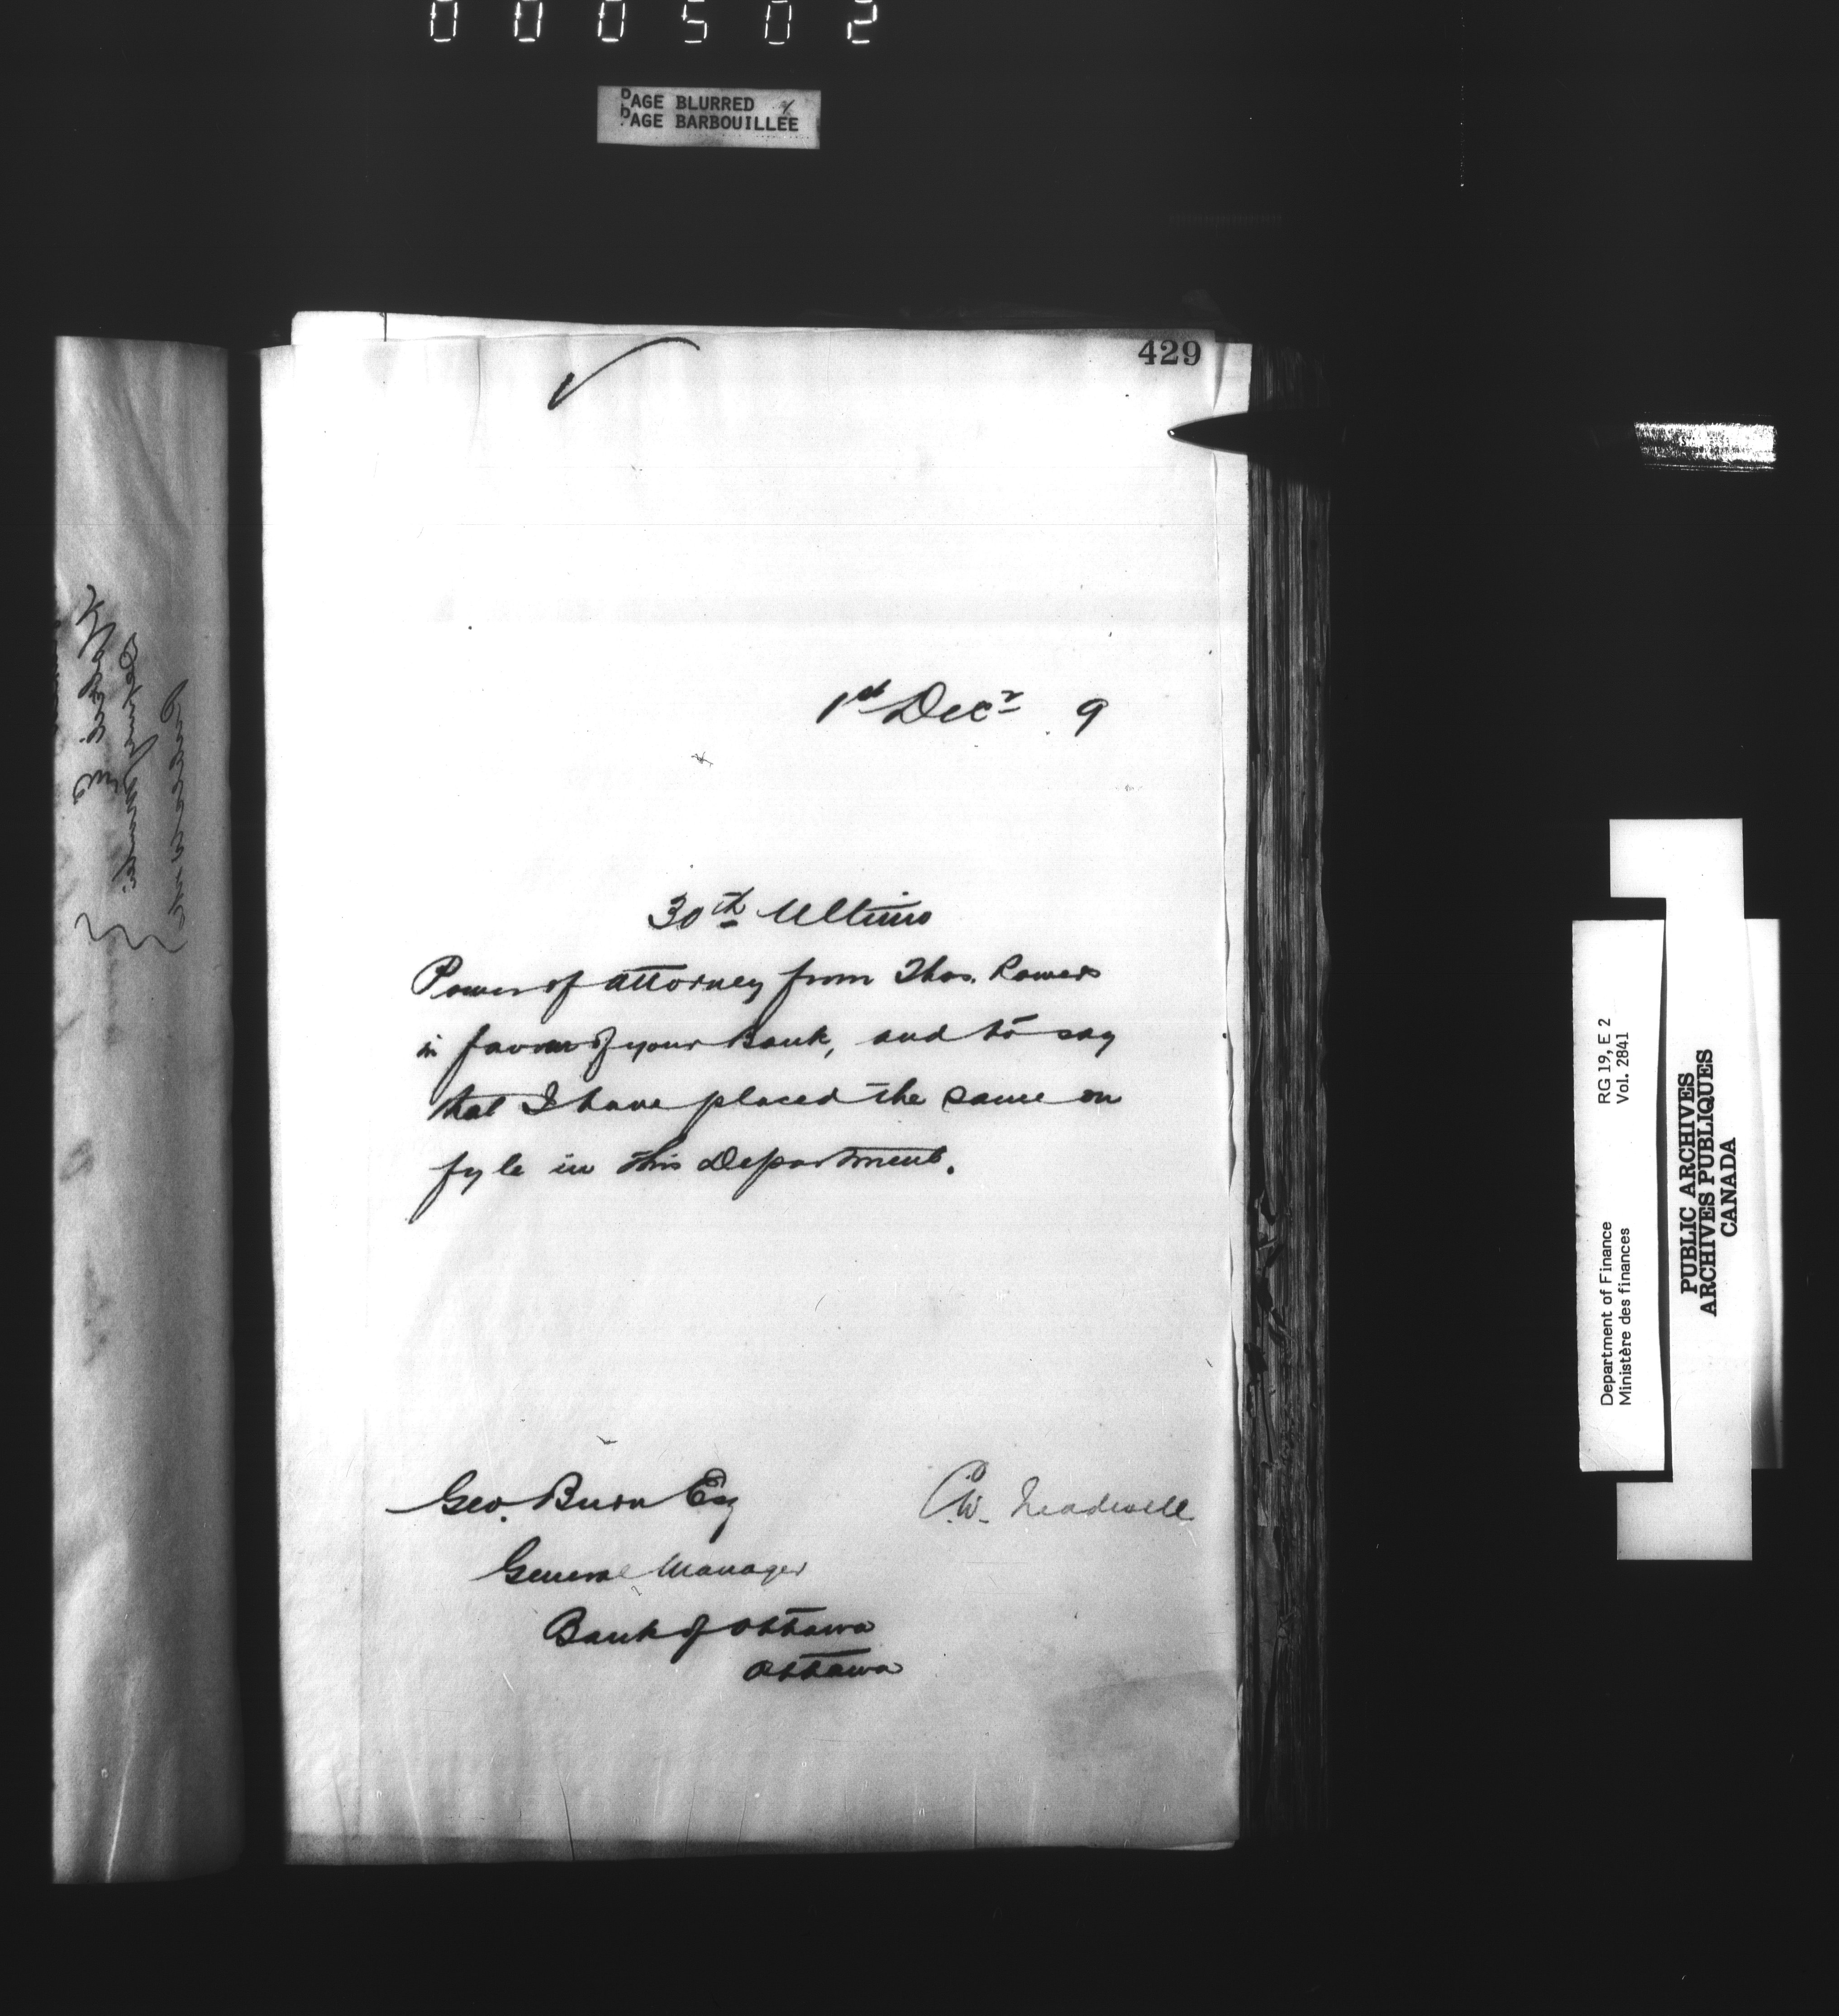 000502
PAGE BLURRED
PAGE BARBOUILLEE
429
1st Decr 9
30th Ultimo
Power of attorney from Thos. Powers
in favour of your Bank, and to say
that I have placed the same on
fyle in this Department.
Geo. Burn Esq
C.W. Treadwell
General Manager
Bank of Ottawa
Ottawa
RG 19, E 2
Vol. 2841
Department of Finance
Ministère des finances
PUBLIC ARCHIVES
ARCHIVES PUBLIQUES
CANADA